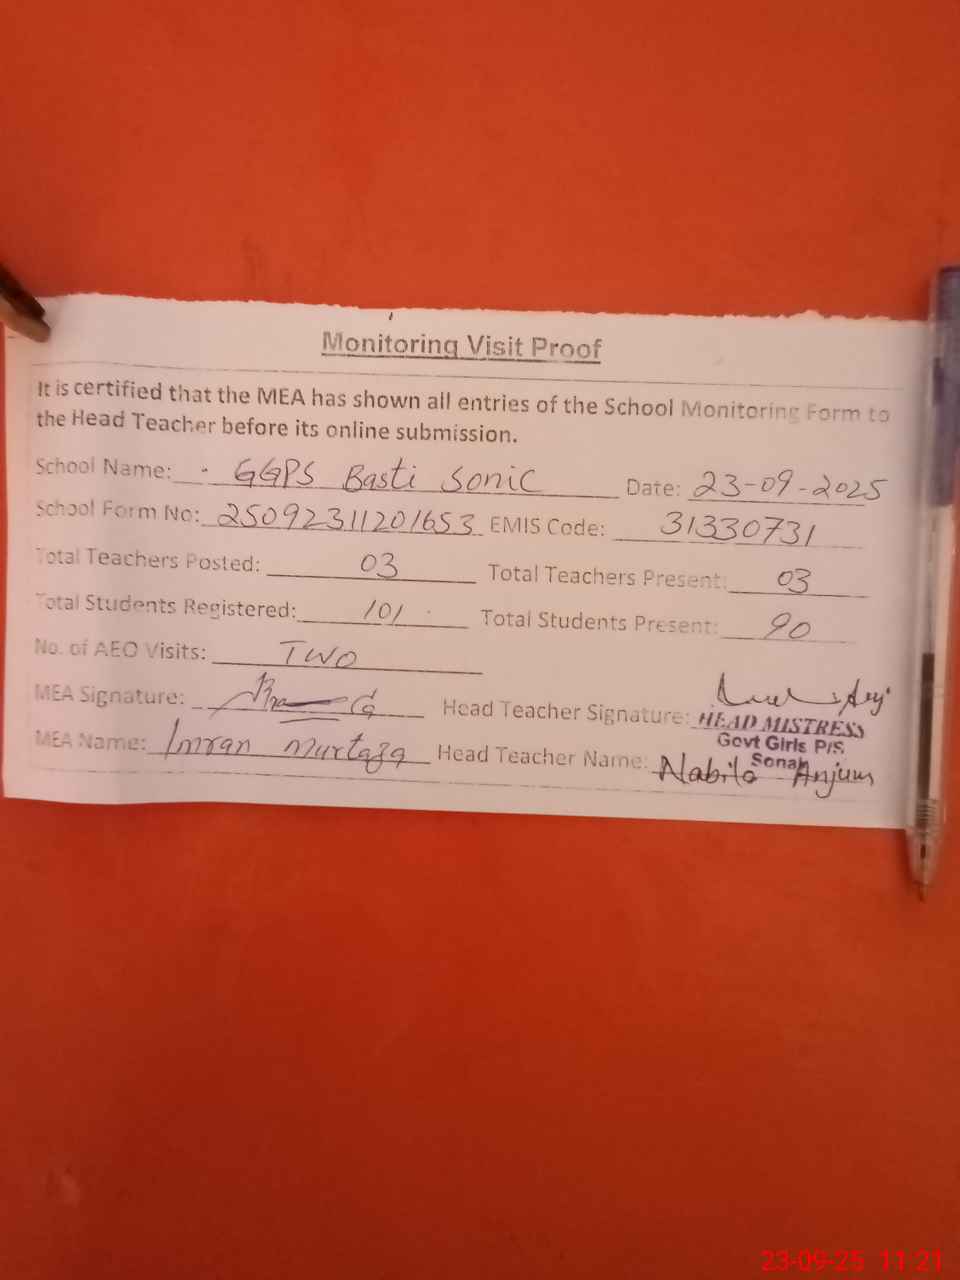 Monitoring Visit Proof
It is certified that the MEA has shown all entries of the School Monitoring Form to
the Head Teacher before its online submission.
School Name: GGPS Basti Sonic Date: 23-09-2025
School Form No: 25092311201653 EMIS Code: 31330731
Total Teachers Posted: 03 Total Teachers Present: 03
Total Students Registered: 101 Total Students Present: 90
No. of AEO Visits: TWO
MEA Signature: Head Teacher Signature:
HEAD MISTRESS
Govt Girls P/S
Sonak
MEA Name: Imran Murtaza Head Teacher Name: Nabila Anjum
23-09-25 11:21